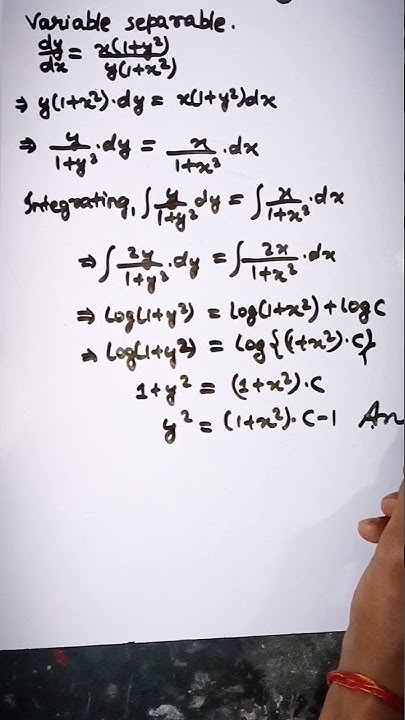 Variable separable.
dy/dx = x(1+y²)/y(1+x²)
⇒ y(1+x²)·dy = x(1+y²)dx
⇒ y/1+y²·dy = x/1+x²·dx
Integrating, ∫y/1+y² dy = ∫x/1+x²·dx
⇒ ∫2y/1+y²·dy = ∫2x/1+x²·dx
⇒ log(1+y²) = log(1+x²)+logC
⇒ log(1+y²) = log{(1+x²)·C}
1+y² = (1+x²)·C
y² = (1+x²)·C-1 An